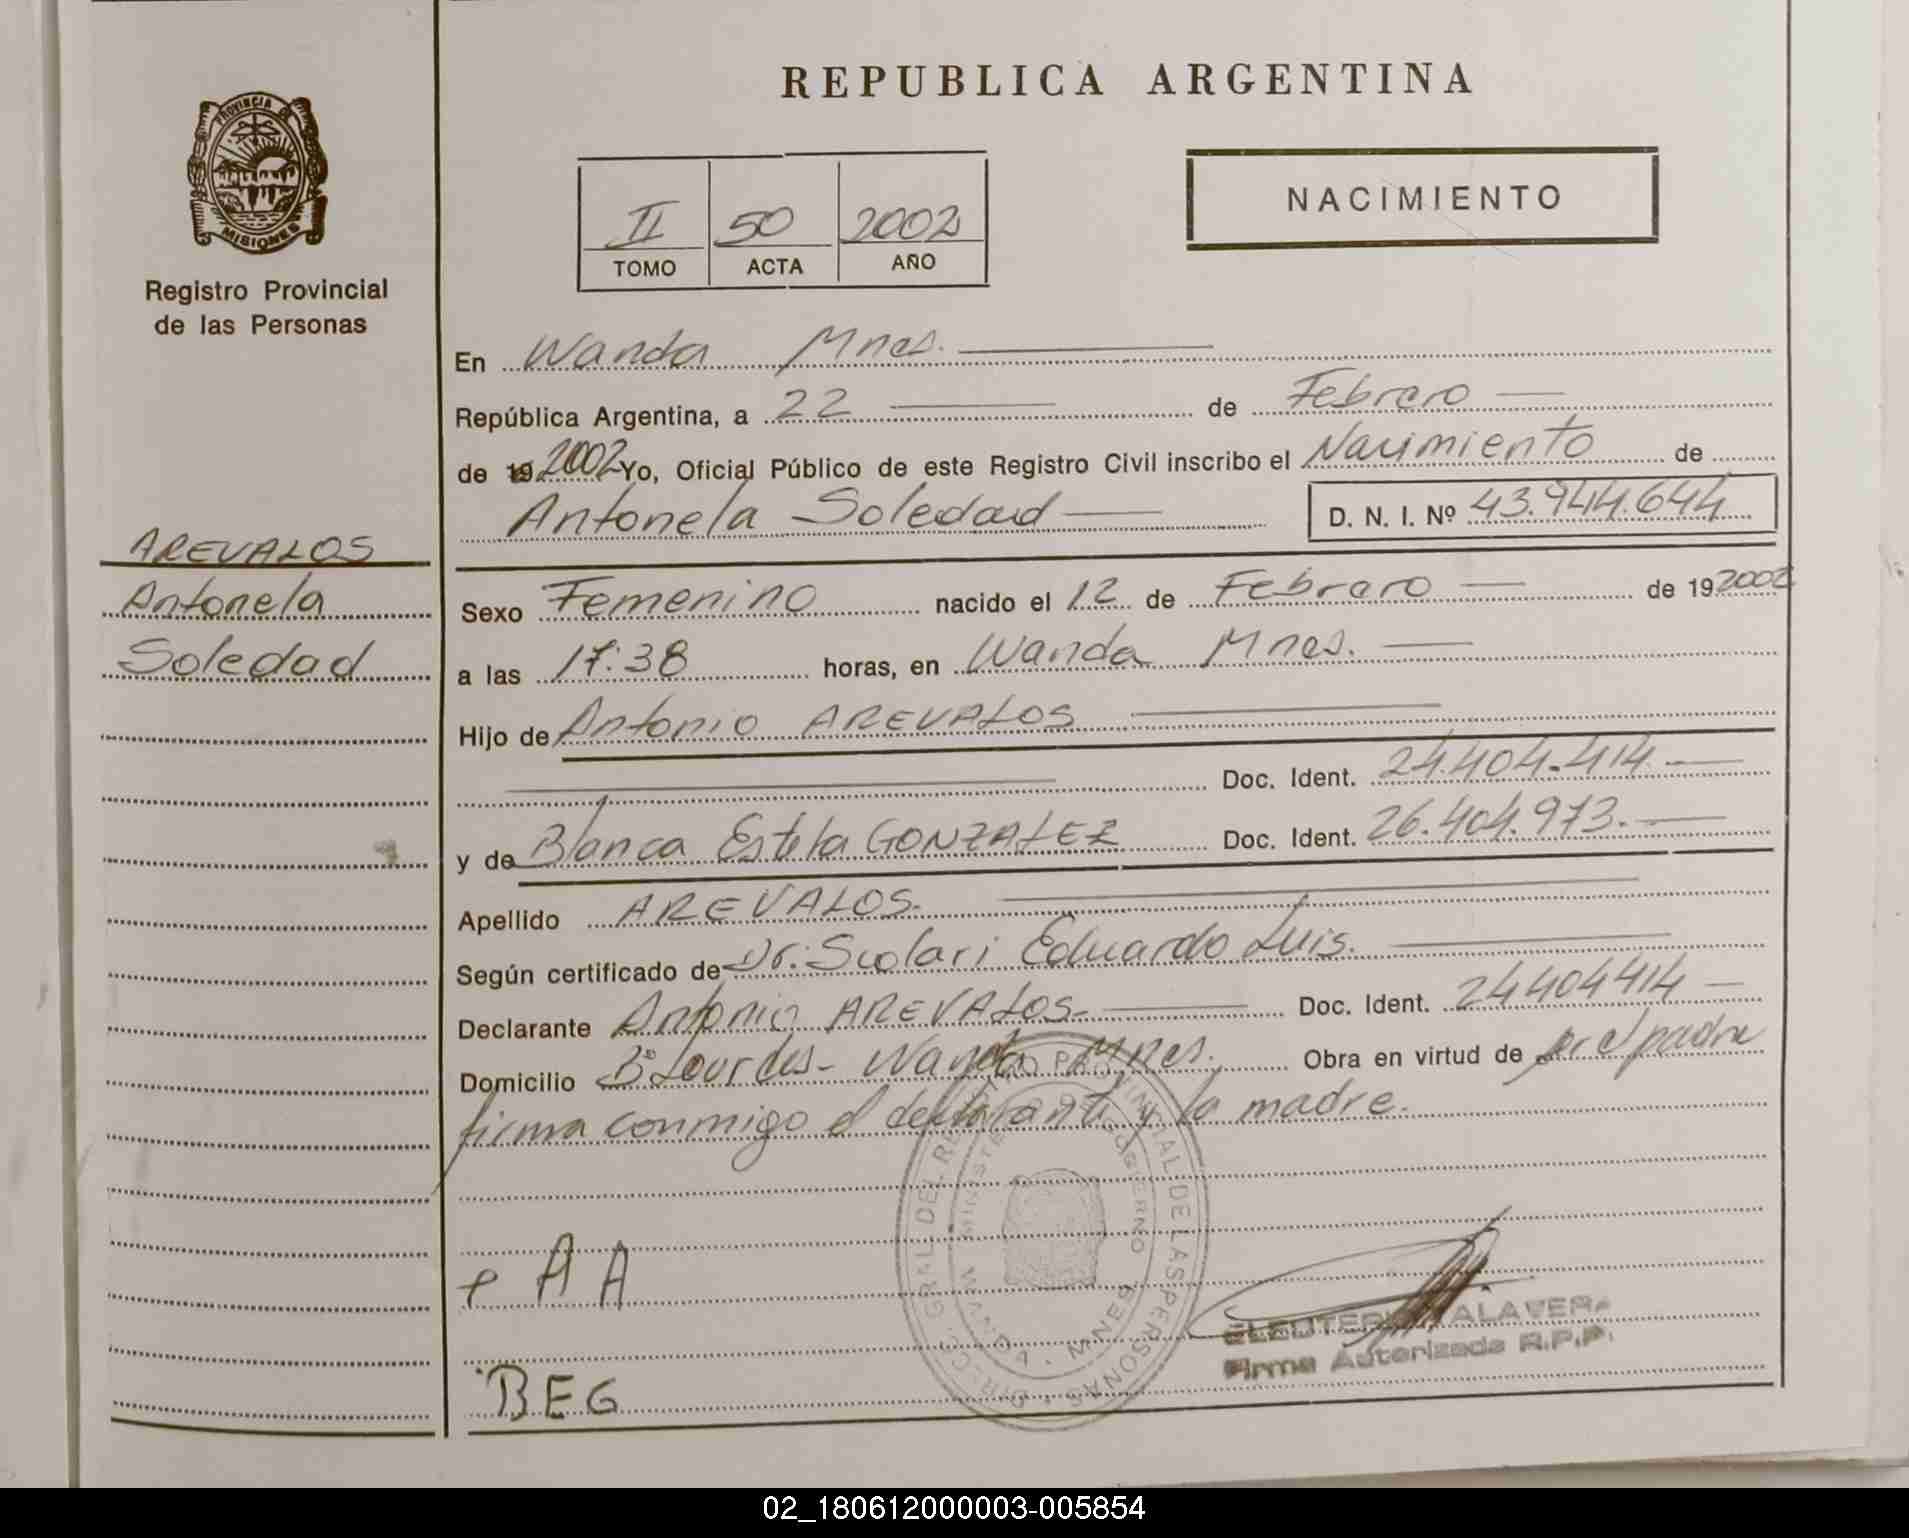 REPUBLICA ARGENTINA
PROVINCIA DE
MISIONES
Registro Provincial
de las Personas
II 50 2002
TOMO ACTA AÑO
NACIMIENTO
En Wanda Mnes.
República Argentina, a 22 de Febrero
de 19 2002 Yo, Oficial Público de este Registro Civil inscribo el Nacimiento de
Antonela Soledad D. N. I. Nº 43.944.644
AREVALOS
Antonela
Soledad
Sexo Femenino nacido el 12 de Febrero de 19 2002
a las 17:38 horas, en Wanda Mnes.
Hijo de Antonio AREVALOS
Doc. Ident. 24.404.414
y de Blanca Estela GONZALEZ Doc. Ident. 26.404.973.
Apellido AREVALOS.
Según certificado de Dr. Scolari Eduardo Luis.
Declarante Antonio AREVALOS- Doc. Ident. 24404414
Domicilio Bº Lourdes- Wanda Mnes. Obra en virtud de ser el padre
firma conmigo el declarante y la madre.
A A
BEG
DIRECC. GRAL DEL REGISTRO PROVINCIAL DE LAS PERSONAS
MINISTERIO DE GOBIERNO
WANDA - MNES
ELEUTERIO ALAVER
Firma Autorizada R.P.P.
02_180612000003-005854